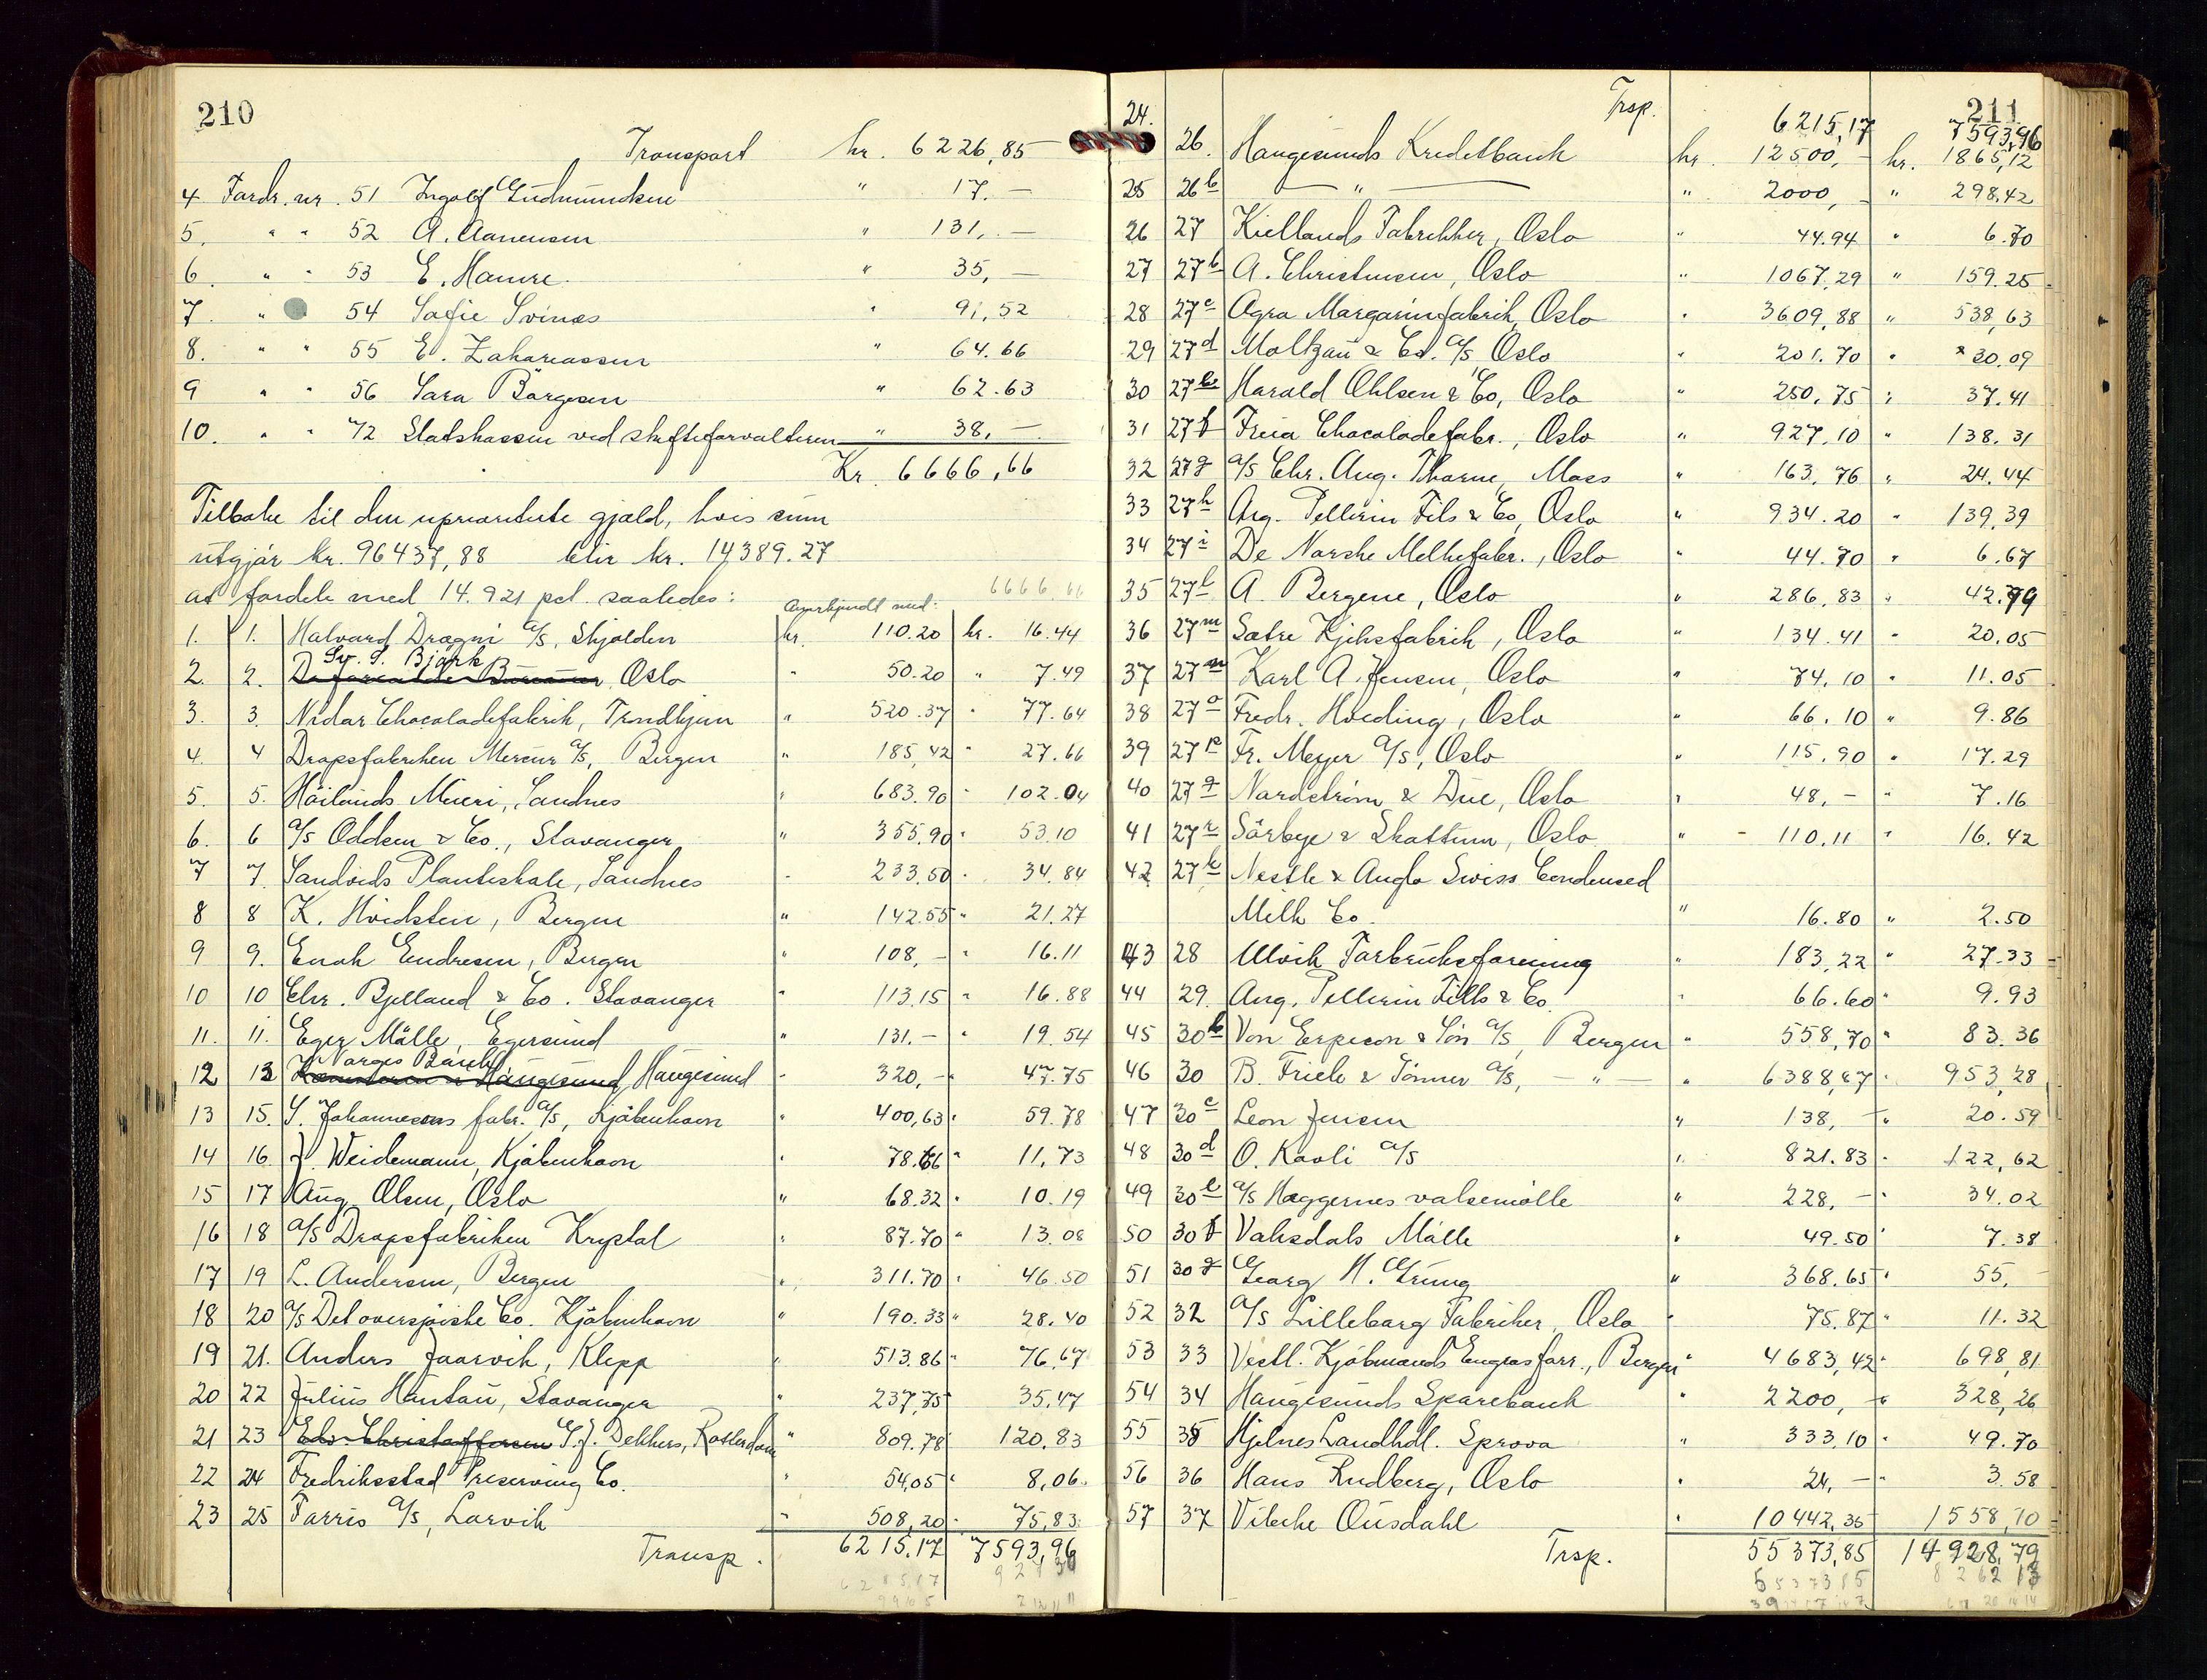 210
Transport kr. 6226,85
4 Fordr. nr. 51 Ingolf Gudmundsen " 17.—
5. " " 52 A. Aanensen " 131,.—
6. " " 53 E. Hamre. " 35,—
7. " 54 Sofie Svinæs " 91,52
8. " " 55 E. Zakariassen " 64.66
9 " " 56 Sara Börgesen " 62.63
10. " " 72 Statskassen ved skifteforvalteren " 38,—
Kr. 6666,66
Tilbake til den uprioriterte gjæld, hvis sum
utgjör kr. 96437,88 blir kr. 14389.27
at fordele med 14.921 pct. saaledes:
6666,66
Anerkjendt med:
1. 1. Halvard Drægni A/S, Skjolden kr. 110.20 kr. 16.44
Sv. S. Björk
2. 2. De forenede Oslo " 50.20 " 7.49
3. 3. Nidar Chocoladefabrik, Trondhjem " 520.37 " 77.64
4. 4 Dropsfabriken Mercur A/S, Bergen " 185,42 " 27.66
5. 5. Höilands Mieri, Sandnes " 683.90 " 102.04
6. 6 A/S Oddsen & Co., Stavanger " 355,90 " 53.10
7 7. Sandveds Planteskole, Sandnes " 233.50 " 34.84
8 8 K. Hvidsten, Bergen " 142.55 " 21.27
9 9. Enok Endresen, Bergen " 108,— " 16.11
10 10 Chr. Bjelland & Co. Stavanger " 113.15 " 16.88
11. 11. Eger Mölle, Egersund " 131.— " 19.54
Norges Bank
12 13 Haugesund, Haugesund " 320,— " 47.75
13 15. S. Johannesens fabr. A/S, Kjöbenhavn " 400,63 " 59.78
14 16. J. Weidemann, Kjöbenhavn " 78.66 " 11,73
15 17 Aug. Olsen, Oslo " 68.32 " 10.19
16 18 A/S Dropsfabriken Krystal " 87.70 " 13.08
17 19 L. Andersen, Bergen " 311.70 " 46.50
18 20 A/S Det oversjöiske Co. Kjöbenhavn " 190.33 " 28.40
19 21. Anders Jaarvik, Klepp " 513.86 " 76.67
20 22 Julius Huntau, Stavanger " 237,75 " 35,47
21 23 Edv. Christoffersen S.J. Dekkers, Rotterdam " 809.78 " 120.83
22 24 Fredriksstad Preserving Co. " 54,05 " 8,06.
23 25 Farris A/S, Larvik " 508,20 " 75,83.
Transp. 6215.17 7593,96
211
Trsp. 6215,17 7593,96
24. 26. Haugesunds Kreditbank kr. 12500,— kr. 1865,12
25 26b — " — " 2000,— " 298,42
26 27 Kiellands Fabrikker, Oslo " 44.94 " 6.70
27 27b A. Christensen, Oslo " 1067.29 " 159.25
28 27c Agra Margarinfabrik, Oslo " 3609,88 " 538,63
29 27d Moltzau & Co. A/S, Oslo " 201.70 " 30.09
30 27e Harald Ohlsen & Co, Oslo " 250,75 " 37.41
31 27f Freia Chocoladefabr., Oslo " 927,10 " 138.31
32 27g A/S Chr. Aug. Thorne, Moss " 163,76 " 24.44
33 27h Aug. Pellerin Fils & Co, Oslo " 934.20 " 139,39
34 27i De Norske Melkefabr., Oslo " 44.70 " 6.67
35 27l A. Bergene, Oslo " 286,83 " 42.79
36 27m Sætre Kjeksfabrik, Oslo " 134.41 " 20.05
37 27n Karl A. Jensen, Oslo " 74,10 " 11.05
38 27o Fredr. Hveding, Oslo " 66.10 " 9.86
39 27p Fr. Meyer A/S, Oslo " 115.90 " 17.29
40 27q Nordström & Due, Oslo " 48,— " 7.16
41 27r Sörbye & Skattum, Oslo " 110.11 " 16.42
42 27k Nestle & Anglo Swiss Condensed
Milk Co. " 16.80 " 2.50
43 28 Ulvik Forbruksforening " 183,22 " 27.33
44 29. Aug. Pellerin Fills & Co. " 66.60 " 9.93
45 30b Von Erpecom & Sön A/S, Bergen " 558,70 " 83.36
46 30 B. Friele & Sönner A/S, — " — " 6388,87 " 953,28
47 30c Leon Jensen " 138,— " 20.59
48 30d O. Kavli A/S " 821.83 " 122,62
49 30e A/S Hæggernes valsemölle " 228,— " 34.02
50 30f Vaksdals Mölle " 49.50 " 7.38
51 30g Georg H. Grung " 368.65 " 55,—
52 32 A/S Lilleborg Fabriker, Oslo " 75.87 " 11.32
53 33 Vestl. Kjöbmands Engrosforr., Bergen " 4683,42 " 698,81
54 34 Haugesunds Sparebank " 2200,— " 328,26
55 35 Hjelnes Landhdl. Sprova " 333,10 " 49.70
56 36 Hans Rudberg, Oslo " 24,— " 3.58
57 37 Vibeke Ousdahl " 10442,36 1558,10
Trsp. 55373,85 14928,79